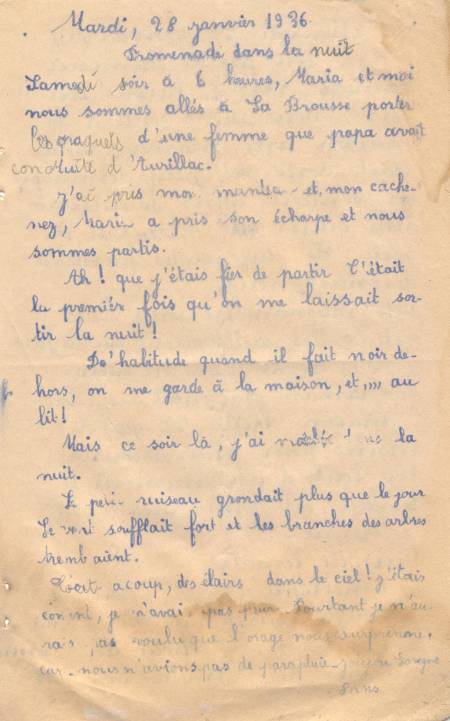 Mardi, 28 janvier 1936
Promenade dans la nuit
Samedi soir à 6 heures, Maria et moi
nous sommes allés à La Brousse porter
les paquets d'une femme que papa avait
conduite d'Aurillac.
J'ai pris mon manteau et mon cache-
nez, Maria a pris son écharpe et nous
sommes partis.
Ah ! que j'étais fier de partir C'était
la premièr fois qu'on me laissait sor-
tir la nuit !
De'habitude quand il fait noir de-
hors, on me garde à la maison, et,,,, au
lit !
Mais ce soir là, j'ai la
nuit.
Le petit ruiseau grondait plus que le jour
Le vent soufflait fort et les branches des arbres
trembaient.
Tout acoup, des élairs dans le ciel ! j'étais
content, je n'avai pas peur. Pourtant je n'au-
rais pas voulu que l'orage nous surprenne,
car nous n'avions pas de parapluie